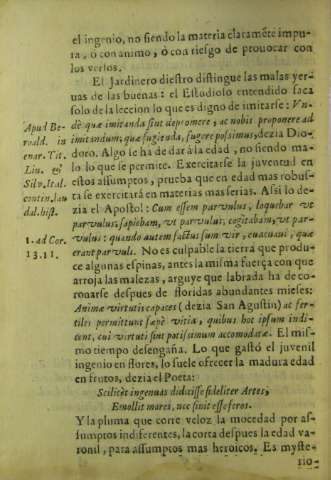 el ingenio, no siendo la materia claramēte impu-
ra, ò con animo, ò con riesgo de prouocar con
los versos.
El Jardinero diestro distingue las malas yer-
uas de las buenas: el Estudioso entendido saca
solo de la leccion lo que es digno de imitarse: Vn-
dè quæ imitanda sint depromere, ac nobis proponere ad
imitandum; quæ fugienda, fugere possimus, dezia Dio-
doro. Algo se ha de dar à la edad, no siendo ma-
lo lo que se permite. Exercitarse la juventud en
estos assumptos, prueba que en edad mas robus-
ta se exercitarà en materias mas serias. Assi lo de-
zia el Apostol: Cum essem parvulus, loquebar vt
parvulus, sapiebam, vt parvulus; cogitabam, vt par-
vulus: quando autem factus sum vir, euacuaui, quæ
erant parvuli. No es culpable la tierra que produ-
ce algunas espinas, antes la misma fuerça con que
arroja las malezas, arguye que labrada ha de co-
ronarse despues de floridas abundantes mieses:
Animæ virtutis capaces (dezia San Agustin) ac fer-
tiles permittunt sæpè vitia, quibus hoc ipsum indi-
cent, cui virtuti sint potissimum accomodatæ. El mis-
mo tiempo desengaña. Lo que gastó el juvenil
ingenio en flores, lo suele ofrecer la madura edad
en frutos, dezia el Poeta:
Scilicèt ingenuas didicisse fideliter Artes,
Emollit mores, nec sinit esse feros.
Y la pluma que corre veloz la mocedad por as-
sumptos indiferentes, la corta despues la edad va-
ronil, para assumptos mas heroicos. Es myste-
rio-
Apud Be-
roald. in
enar. Tit.
Liu. &
Silv. Ital.
conten. lau
dal. hist.
1. ad Cor.
13. 11.